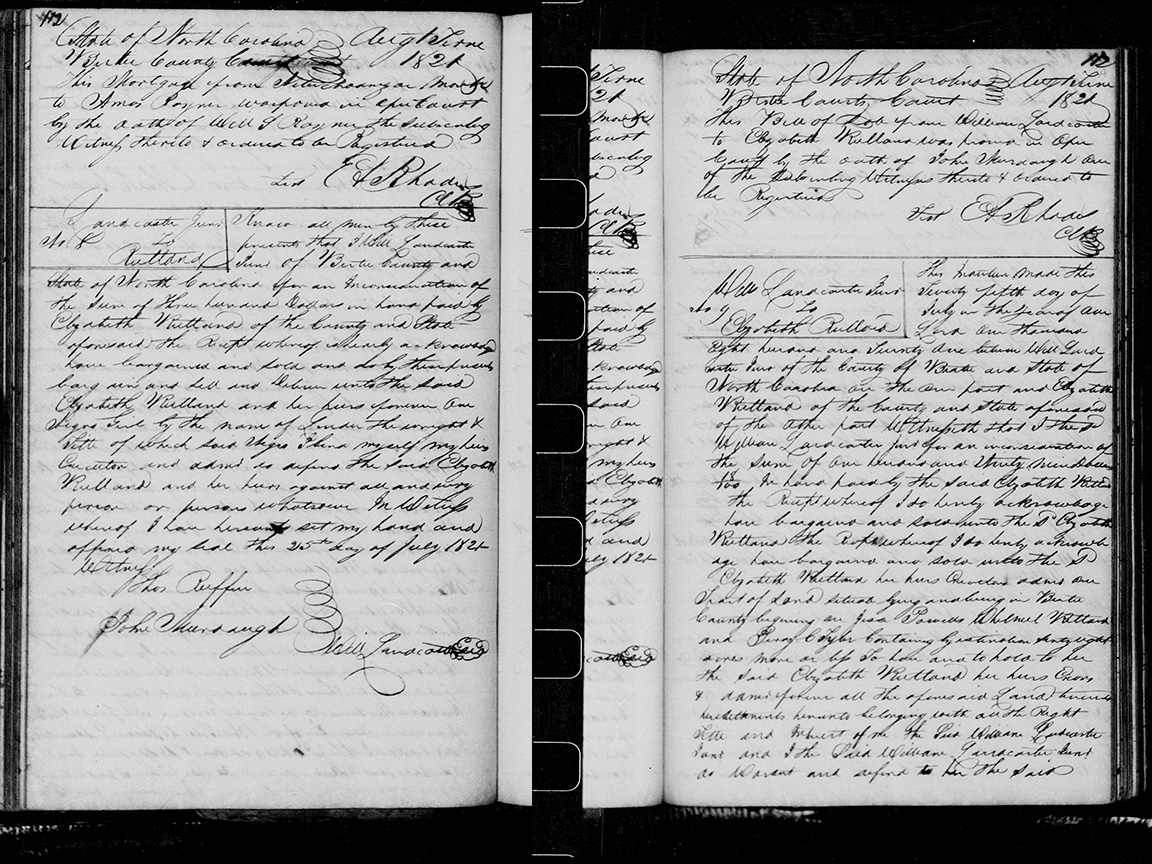 112
State of North Carolina Augt Term
Bertie County 1821
This Mortgage from
to Amos Rayner was proved in open Court
by the oath of Will S Rayner the subscribing
Witness thereto & ordered to be Registered
Test E A Rhodes
Clk
Landcaster Junr
No 8 To
Rutland
Know all men by these
presents that I Will Landcaster
Junr of Bertie County and
State of North Carolina for an Inconsideration of
the Sum of three hundred Dollars in hand paid by
Elizabeth Rutland of the County and State
aforesaid the Recpt whereof is hereby acknowledg
have bargained and sold and do by these presents
bargain and sell and Deliver unto the said
Elizabeth Rutland and her heirs forever one
Negro Girl by the name of Linder the wright &
title of which said Negro I bind myself my heirs
Executors and admr do defend the said Elizabeth
Rutland and her heirs against all and every
person or persons whatsoever In Witness
whereof I have hereunto set my hand and
affixed my seal this 25th day of July 1821
Witness
Thos Ruffin
John Murdaugh
Will Landcaster Seal
112
State of North Carolina Augt Term
Bertie County Court 1821
This Bill of Sale from William Landcaster
to Elizabeth Rutland was proved in Open
Court by the oath of John Murdaugh One
of the Subscribing Witness thereto & ordered to
be Registered
Test E A Rhodes
Clk
Will Landcaster Junr
No 9 To
Elizabeth Rutland
This Indenture made this
Twenty fifth day of
July in the year of our
Lord One thousand
Eight hundred and Twenty One between Will Land
caster Junr of the County of Bertie and State of
North Carolina on the one part and Elizabeth
Rutland of the County and State aforesaid
of the other part Witnesseth that I the sd
William Landcaster Junr for an inconsideration of
the Sum of One hundred and Ninety nine Dollars
to me in hand paid by the said Elizabeth Rutland
the Recpt whereof I do hereby acknowledge
have bargained and sold unto the sd Elizabeth
Rutland the Recpt whereof I do hereby acknowl
age have bargained and sold unto the sd
Elizabeth Rutland her heirs Executors admr one
Tract of Land situate lying and being in Bertie
County begining on Jessa Powells Whitmel Rutland
and Perry Tyler Containing by estimation thirty eight
acres more or less To have and to hold to her
the said Elizabeth Rutland her heirs Exors
& admr forever all the aforesaid Land
belonging with all the Right
title and Interest of me the said William Landcaster
Junr and I the Said William Landcaster Junr
do Warant and defend to her the said